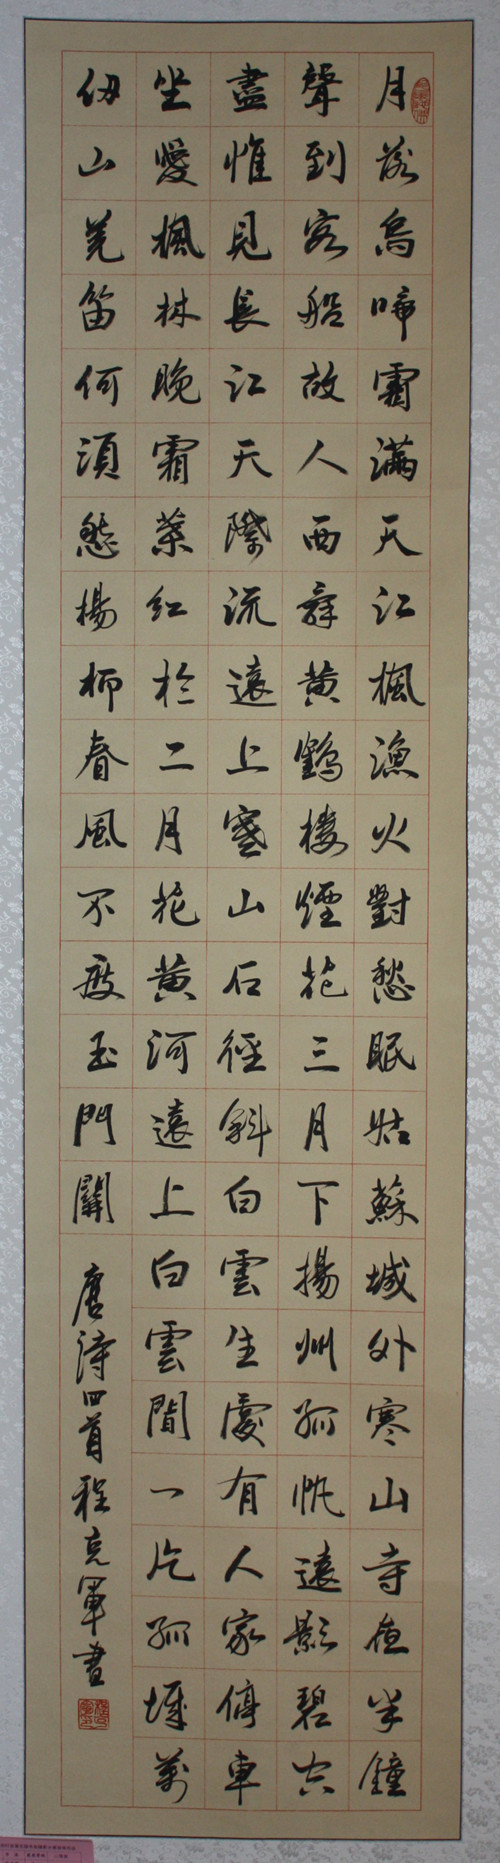 月落烏啼霜滿天江楓漁火對愁眠姑蘇城外寒山寺夜半鐘
聲到客船故人西辭黃鶴樓煙花三月下揚州孤帆遠影碧空
盡惟見長江天際流遠上寒山石徑斜白雲生處有人家停車
坐愛楓林晚霜葉紅於二月花黃河遠上白雲間一片孤城萬
仞山羌笛何須愁楊柳春風不度玉門關
唐詩四首程克軍書